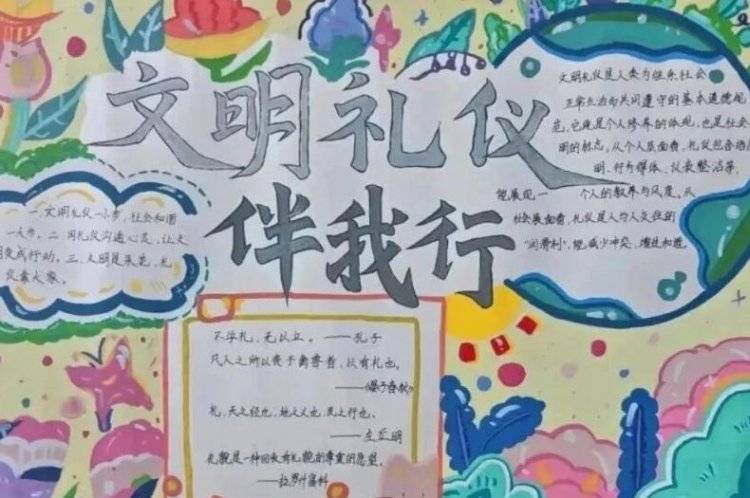 文明礼仪
伴我行
一.文明礼仪一小步,社会和谐
一大步。二.用礼仪沟通心灵,让文
明变成行动。三.文明是朵花,礼
仪靠大家。
文明礼仪是人类为维系社会
正常生活而共同遵守的基本道德规
范,它既是个人修养的体现,也是社会
明的标志。从个人层面看,礼仪包含语
明、行为得体、仪表整洁等,
能展现一 个人的教养与风度。从
社会层面看,礼仪是人与人交往的
“润滑剂”,能减少冲突、增进和谐。
不学礼,无以立。——孔子
凡人之所以贵于禽兽者,以有礼也。
——《晏子春秋》
礼,天之经也,地之义也,民之行也。
——左丘明
礼貌是一种回收有礼貌的尊重的愿望。
——拉罗什富科